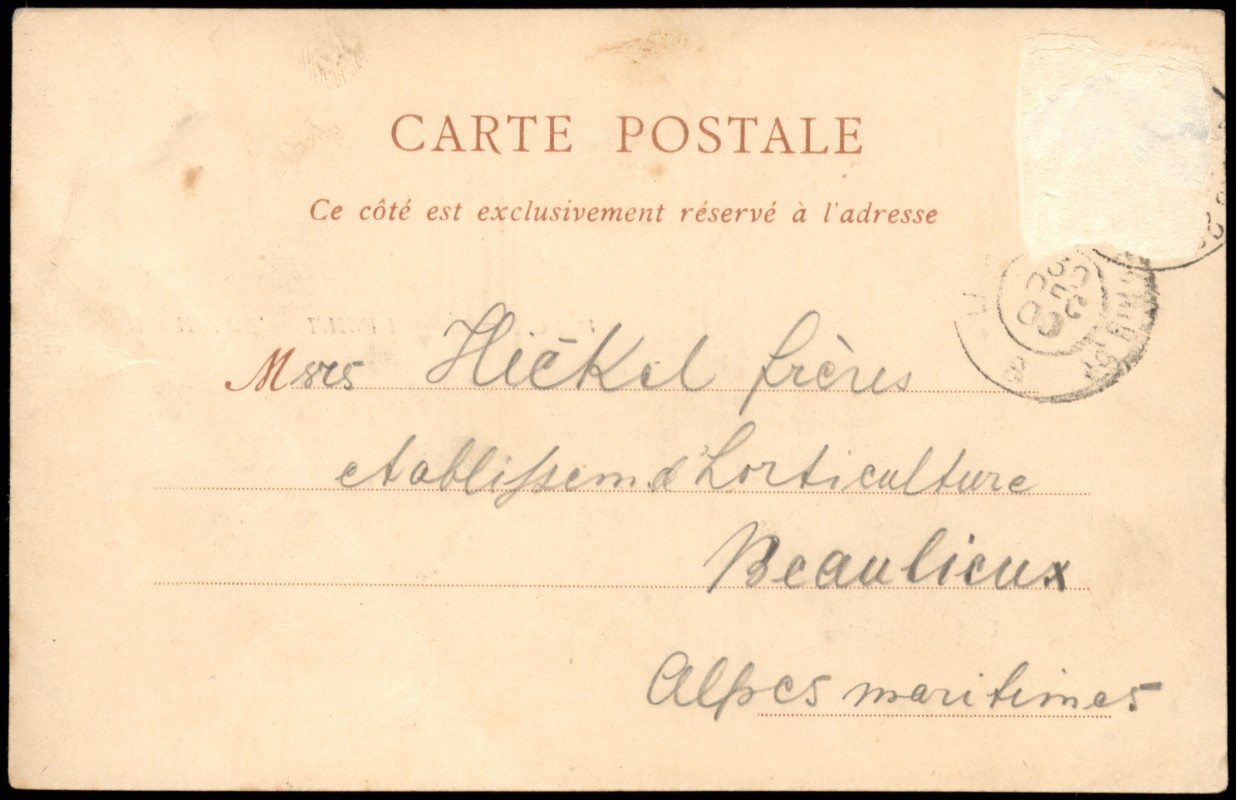 CARTE POSTALE
Ce côté est exclusivement réservé à l'adresse
Msrs Hickel frères
etablissem d'horticulture
Beaulieux
Alpes maritimes